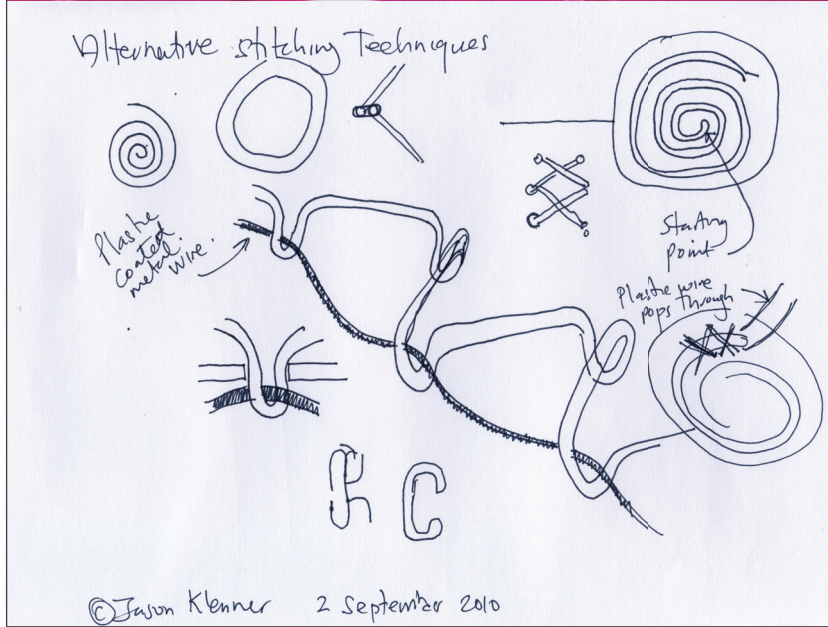 Alternative stitching Techniques
Plastic
coated
metal
wire.
Starting
point
Plastic wire
pops through
© Jason Klenner 2 September 2010